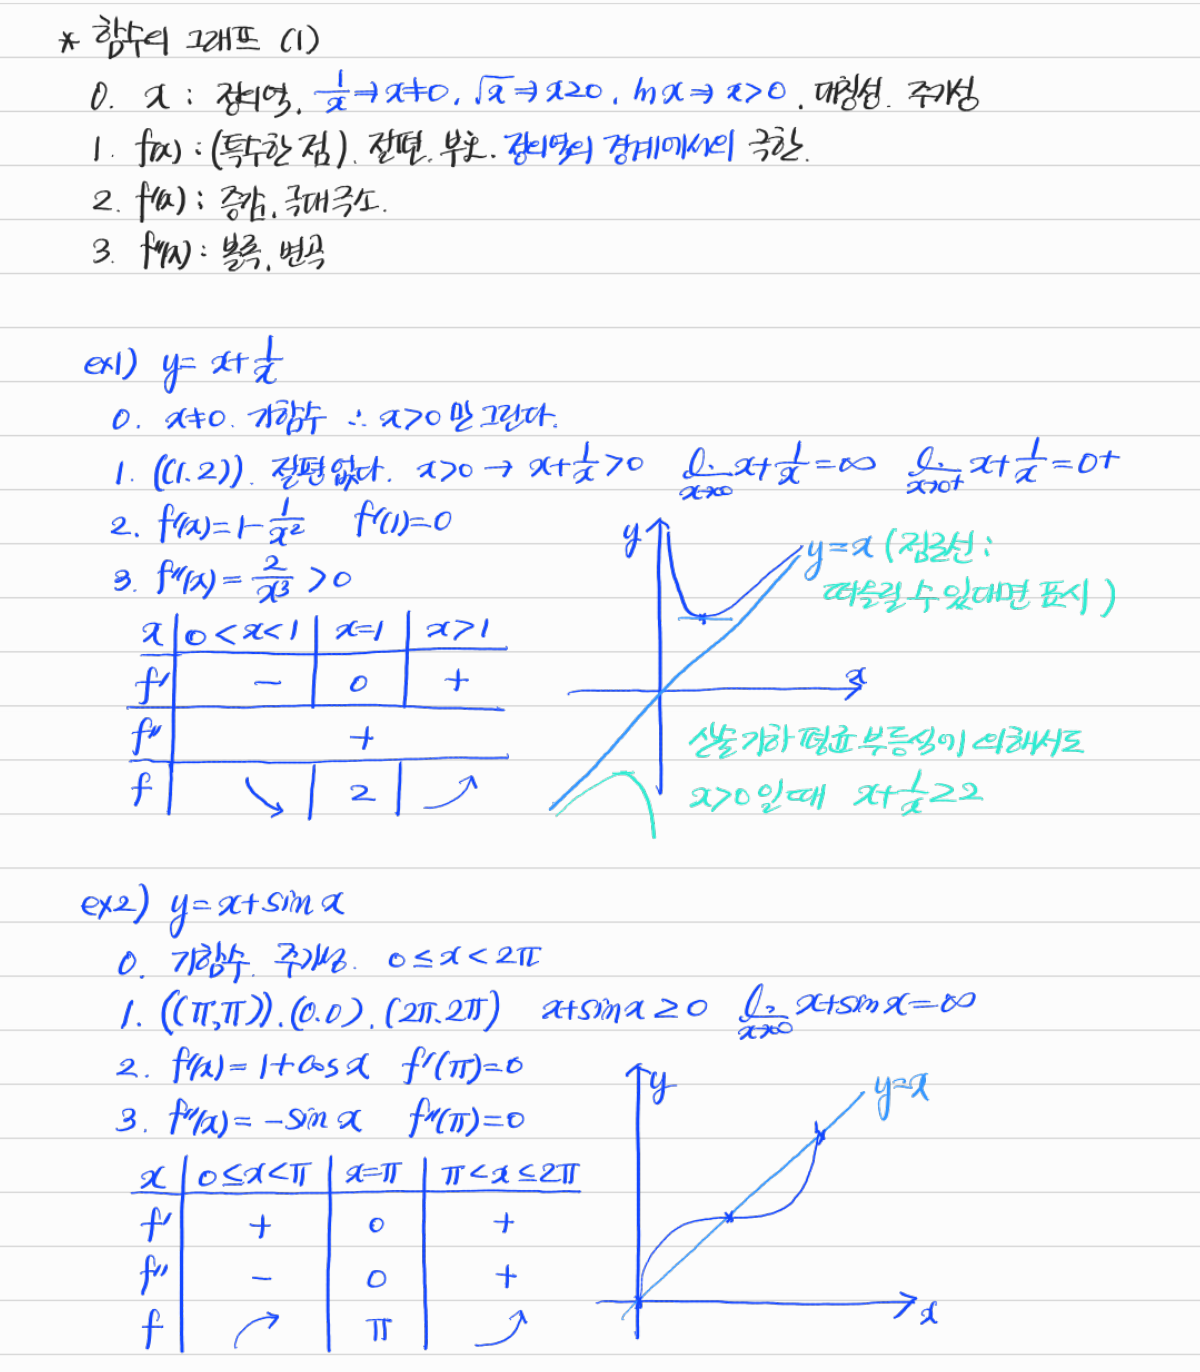 * 함수의 그래프 (1)
0. x : 정의역, 1/x ⇒ x≠0, √x ⇒ x≥0, ln x ⇒ x>0, 대칭성. 주기성
1. f(x) : (특수한 점). 절편. 부호. 정의역의 경계에서의 극한.
2. f'(x) : 증감, 극대극소.
3. f''(x) : 볼록, 변곡
ex1) y= x+1/x
0. x≠0. 기함수 ∴ x>0 만 그린다.
1. ((1.2)). 절편 없다. x>0 → x+1/x >0 lim x→∞ x+1/x = ∞ lim x→0+ x+1/x = 0+
2. f'(x)=1-1/x² f'(1)=0
3. f''(x)= 2/x³ >0
x | 0<x<1 | x=1 | x>1
f' | - | 0 | +
f'' | +
f | ↘ | 2 | ⤴
y
y=x (점근선 :
떠올릴 수 있다면 표시)
x
산술기하 평균 부등식에 의해서도
x>0 일 때 x+1/x ≥2
ex2) y=x+sin x
0. 기함수. 주기성. 0≤x<2π
1. ((π,π)). (0.0). (2π.2π) x+sin x ≥0 lim x→∞ x+sin x=∞
2. f'(x)=1+cos x f'(π)=0
3. f''(x)= -sin x f''(π)=0
x | 0≤x<π | x=π | π<x≤2π
f' | + | 0 | +
f'' | - | 0 | +
f | ↗ | π | ⤴
y
y=x
x